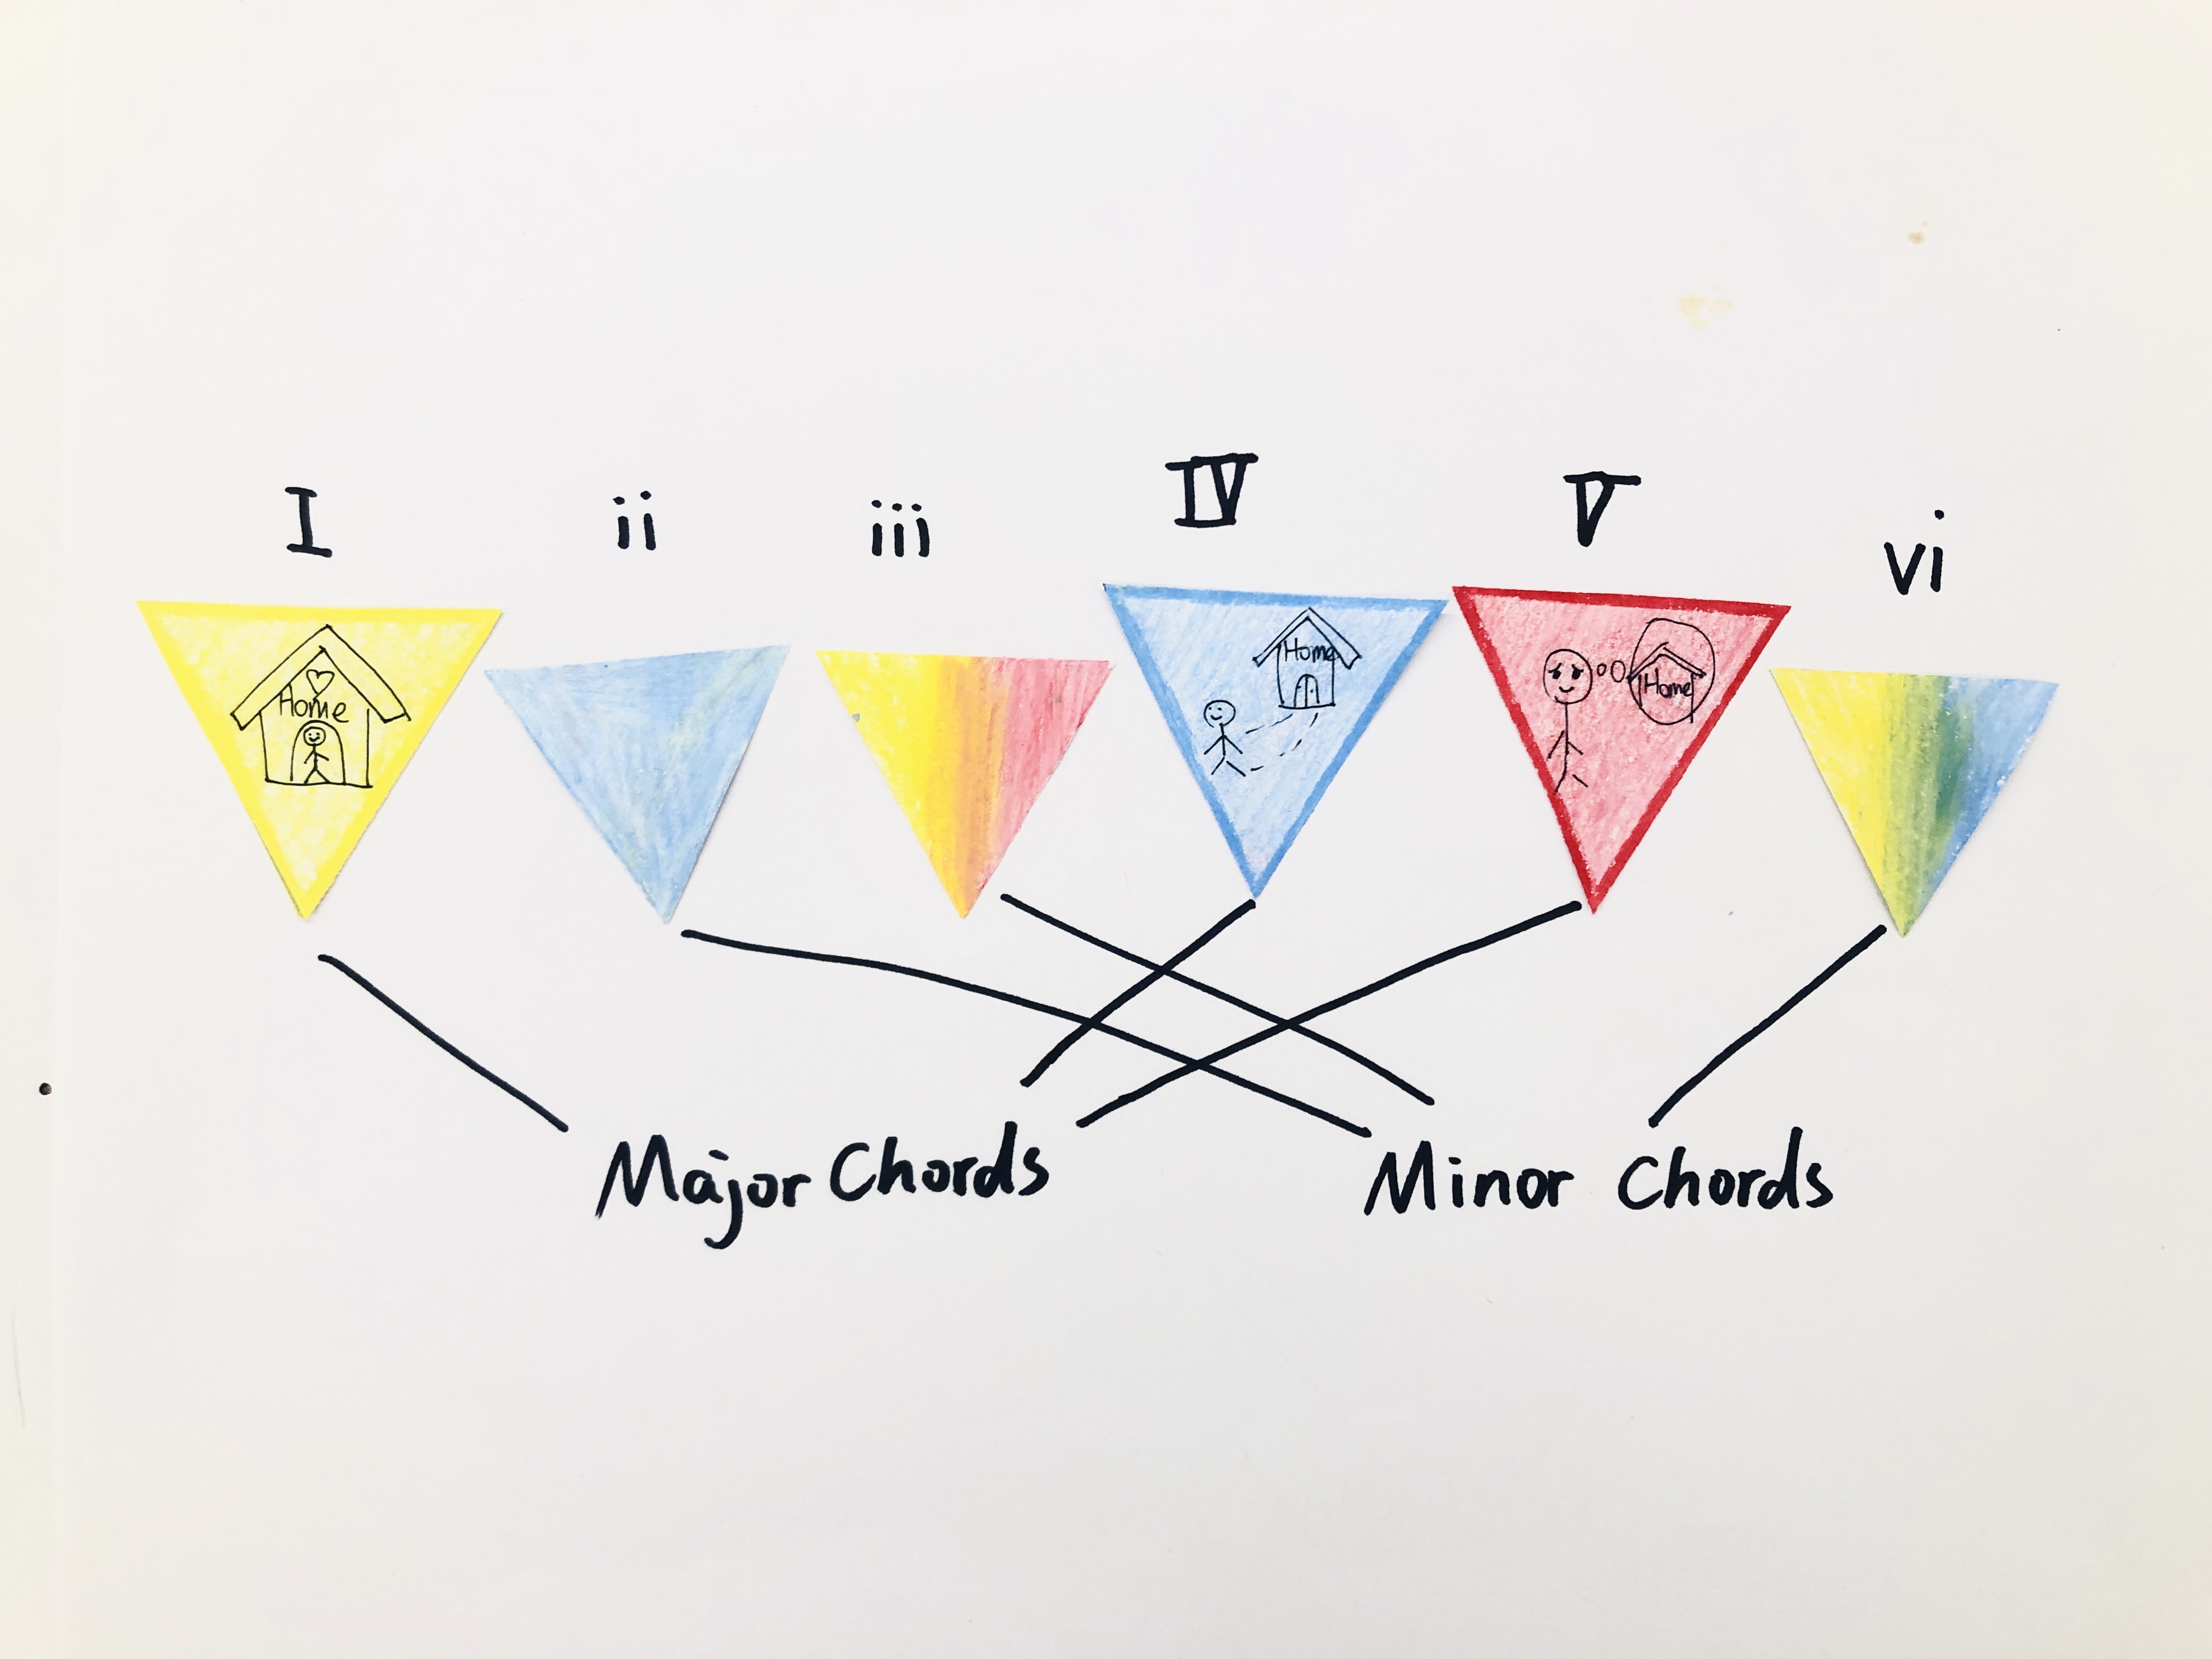 I ii iii IV V vi
Home
Home
Home
Major Chords Minor Chords